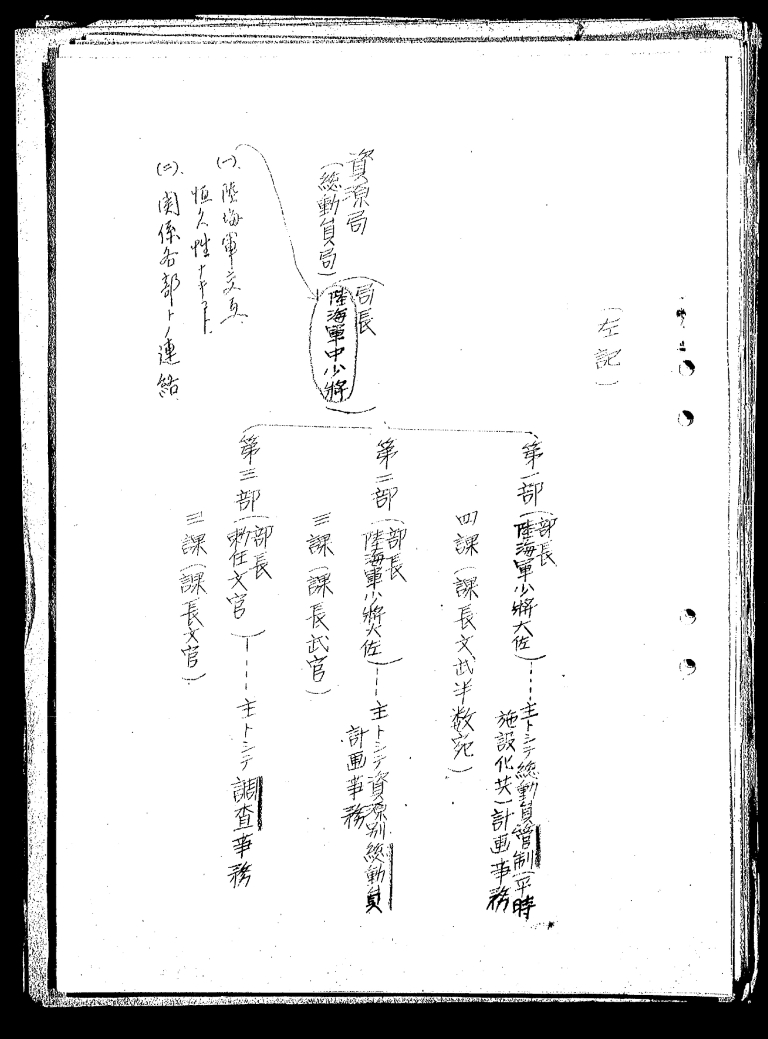 （左記）
資源局
（総動員局）
（局長
陸海軍中少将）
（一）、陸海軍交互
恒久性ナキコト
（二）、関係各部トノ連絡
第一部（部長
陸海軍少将大佐）……主トシテ総動員管制（平時
施設化共）計画事務
四課（課長文武半数宛）
第二部（部長
陸海軍少将大佐）……主トシテ資源別総動員
計画事務
三課（課長武官）
第三部（部長
勅任文官）……主トシテ調査事務
三課（課長文官）